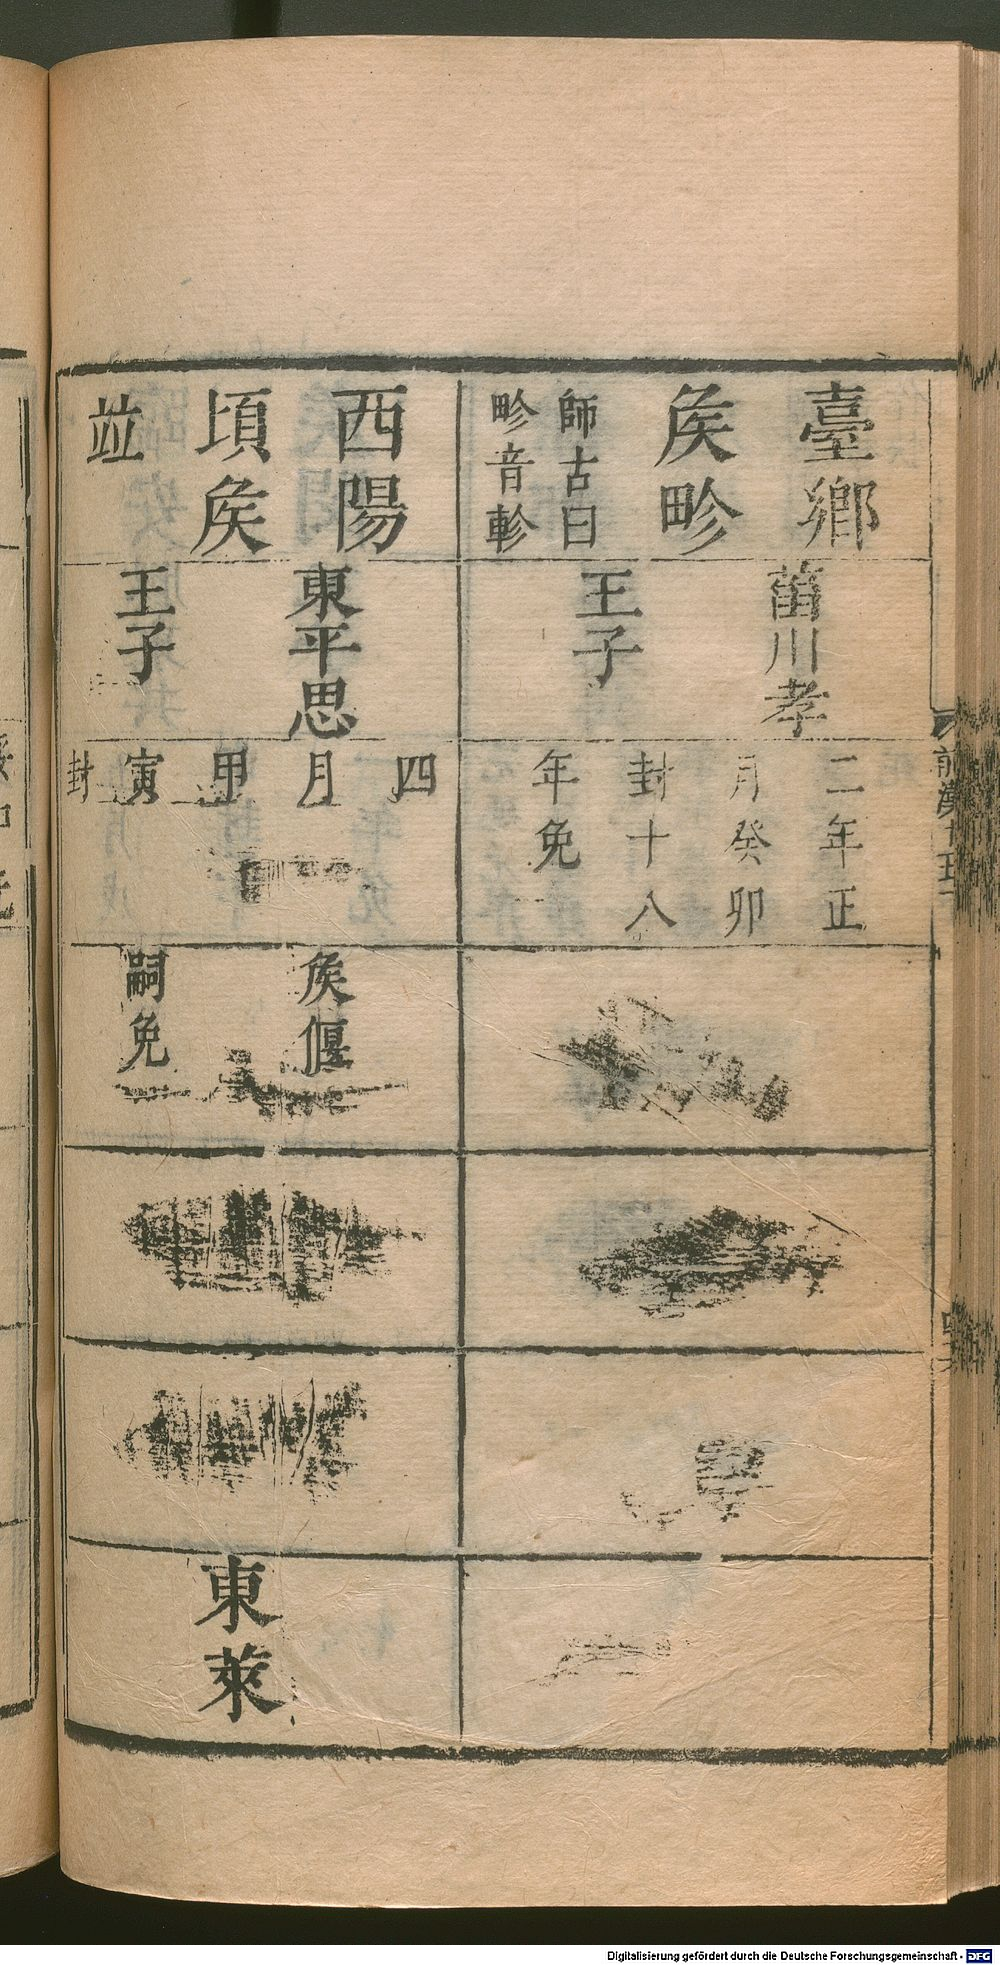 臺鄉
侯畛
師古曰
畛音軫
菑川孝
王子
二年正
月癸卯
封十八
年免
西陽
頃侯
並
東平思
王子
四
月
甲
寅
封
侯偃
嗣免
東萊
前漢十五下
Digitalisierung gefördert durch die Deutsche Forschungsgemeinschaft - DFG